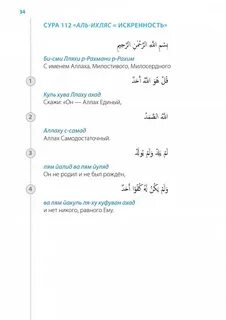 34
СУРА 112 «АЛЬ-ИХЛЯС = ИСКРЕННОСТЬ»
بِسْمِ اللَّهِ الرَّحْمَنِ الرَّحِيمِ
Би-сми Лляхи р-Рахмани р-Рахим
С именем Аллаха, Милостивого, Милосердного
1
قُلْ هُوَ اللَّهُ أَحَدٌ
Куль хува Ллаху ахад
Скажи: «Он — Аллах Единый,
2
اللَّهُ الصَّمَدُ
Аллаху с-самад
Аллах Самодостаточный.
3
لَمْ يَلِدْ وَلَمْ يُولَدْ
лям йалид ва лям йуляд
Он не родил и не был рождён,
4
وَلَمْ يَكُنْ لَهُ كُفُوًا أَحَدٌ
ва лям йакуль ля-ху куфуван ахад
и нет никого, равного Ему.